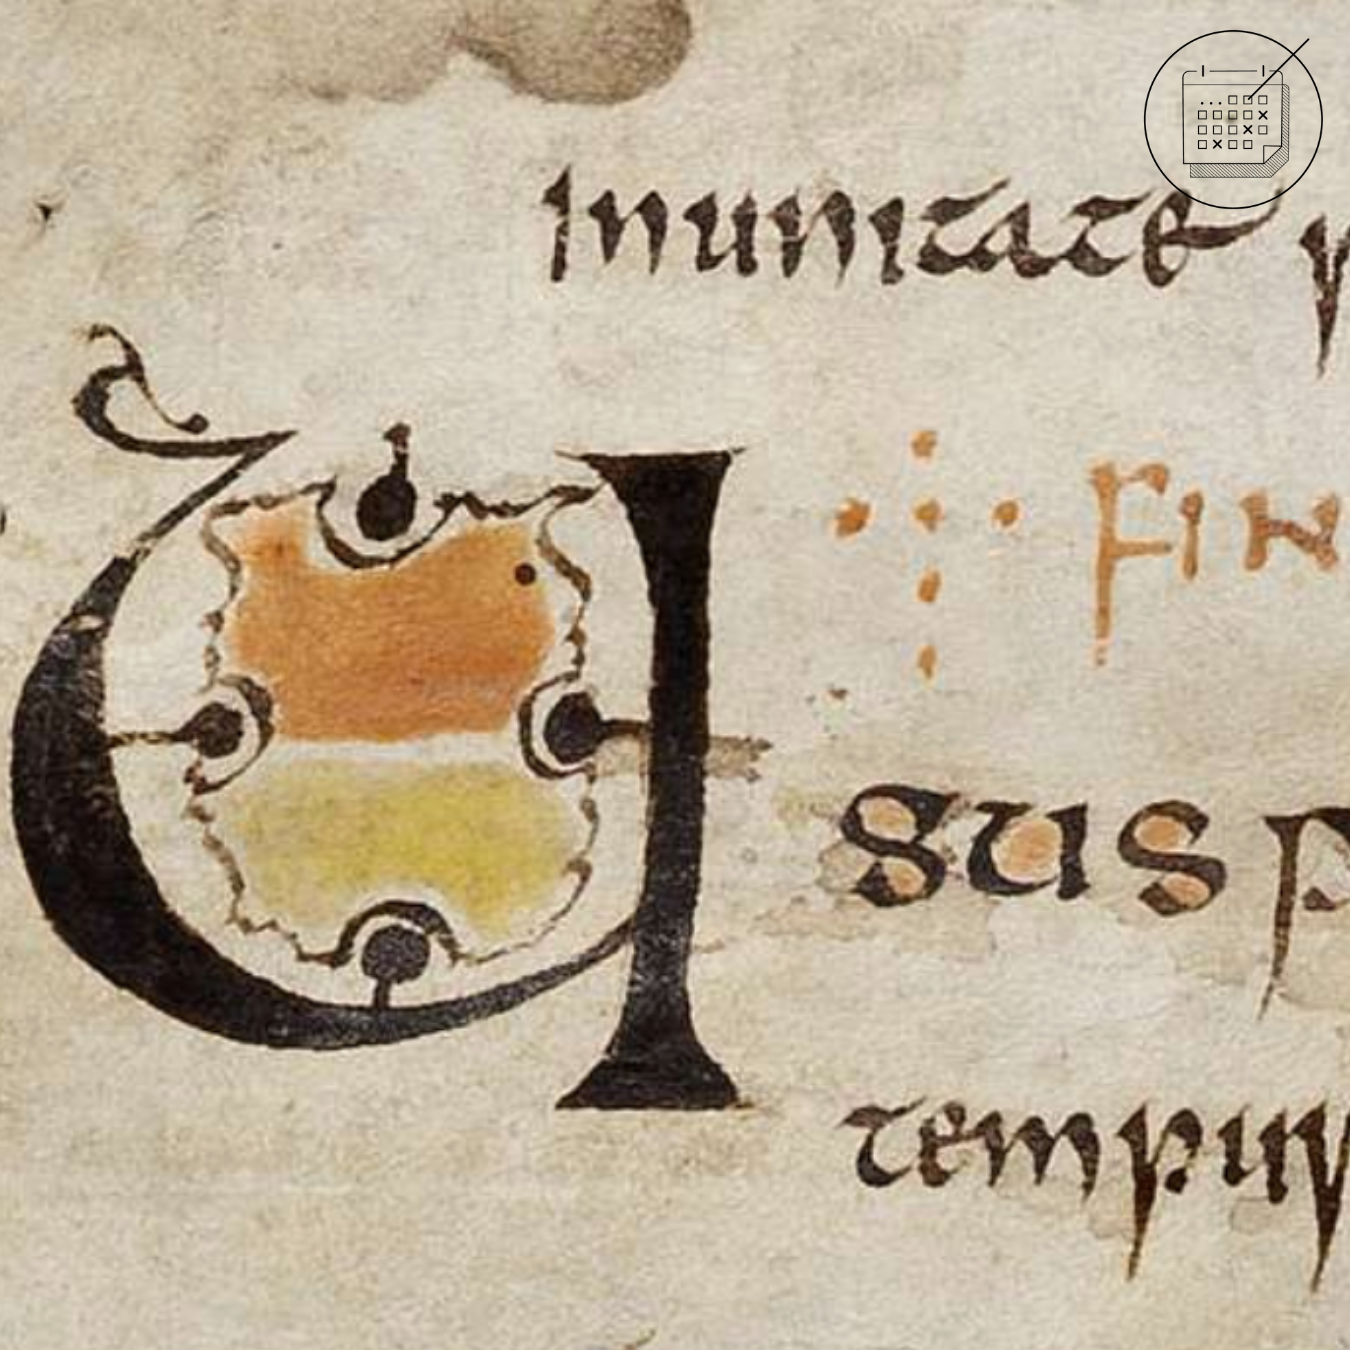 Inunitate
FIN
Usus p
tempus